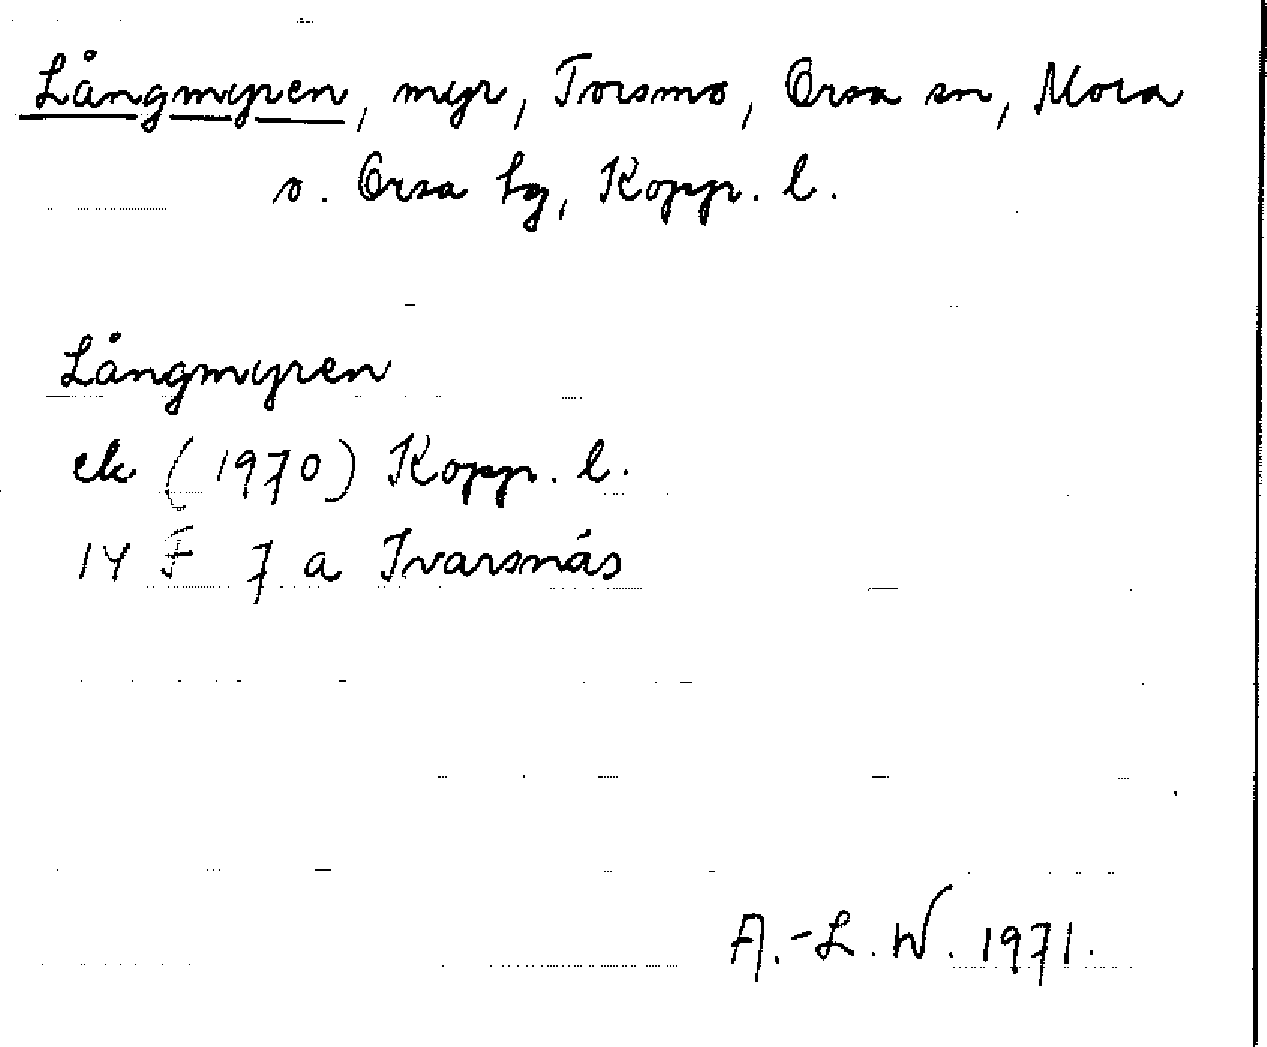 Långmyren, myr, Torsmo, Orsa sn, Mora
o. Orsa tg, Kopp. l.
Långmyren
ek (1970) Kopp. l.
14 F 7 a Ivarsnäs
A.-L. W. 1971.